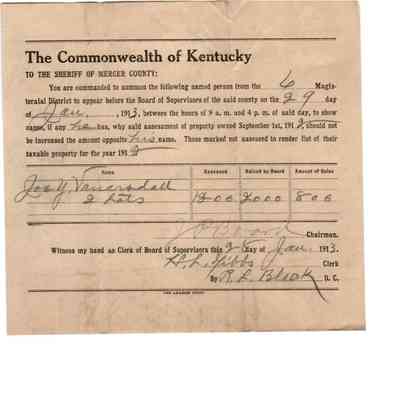 The Commonwealth of Kentucky
TO THE SHERIFF OF MERCER COUNTY:
You are commanded to summon the following named person from the 6 Magis-
terial District to appear before the Board of Supervisors of the said county on the 29 day
of Jan, 1913, between the hours of 9 a. m. and 4 p. m. of said day, to show
cause, if any he has, why said assessment of property owned September 1st, 1912, should not
be increased the amount opposite his name. Those marked not assessed to render list of their
taxable property for the year 1912
Name Assessed Raised by Board Amount of Raise
Jas Y. Vanarsdall 1200 2000 800
2 Lots
Chairman.
Witness my hand as Clerk of Board of Supervisors this 28 day of Jan. 1913.
H. L. Gibbs Clerk
By R. L. Black D. C.
THE LEADER PRINT